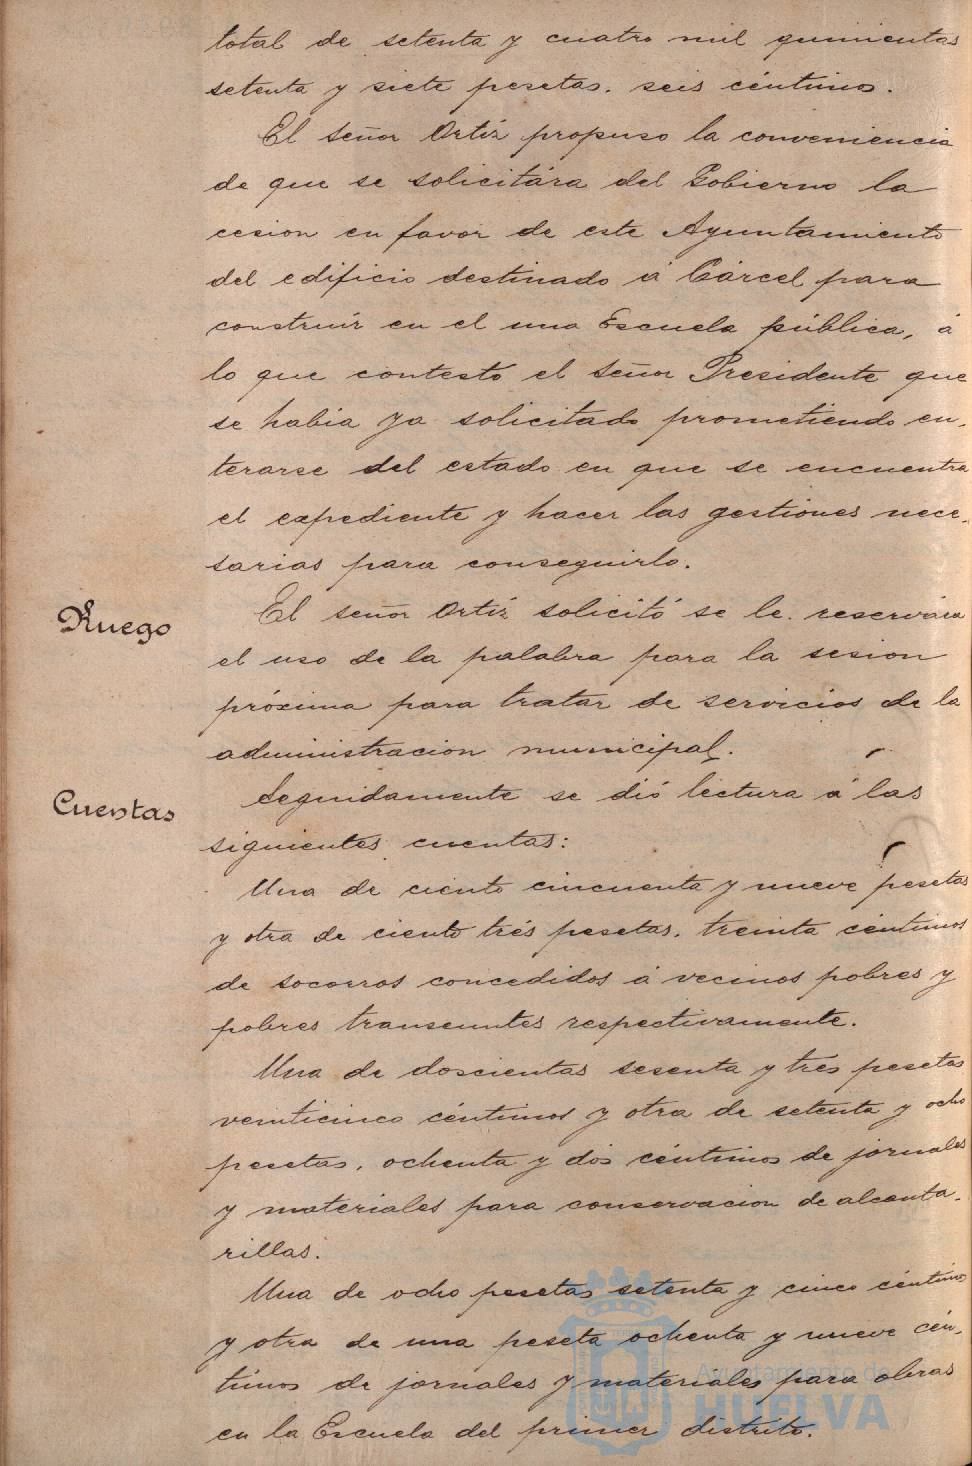 total de setenta y cuatro mil quinientas
setenta y siete pesetas. seis céntimos.
El señor Ortíz propuso la conveniencia
de que se solicitára del Gobierno la
cesion en favor de este Ayuntamiento
del edificio destinado á Cárcel para
construir en el una Escuela pública, á
lo que contestó el señor Presidente que
se habia ya solicitado prometiendo en-
terarse del estado en que se encuentra
el expediente y hacer las gestiones nece-
sarias para conseguirlo.
Ruego
El señor Ortíz solicitó se le. reservára
el uso de la palabra para la sesion
próxima para tratar de servicios de la
administracion municipal.
Cuentas
Seguidamente se dió lectura á las
siguientes cuentas:
Una de ciento cincuenta y nueve pesetas
y otra de ciento trés pesetas. treinta céntimos
de socorros concedidos á vecinos pobres y
pobres transeuntes respectivamente.
Una de doscientas sesenta y trés pesetas
veinticinco céntimos y otra de setenta y ocho
pesetas, ochenta y dós céntimos de jornales
y materiales para conservacion de alcanta-
rillas.
Una de ocho pesetas setenta y cinco céntimos
y otra de una peseta ochenta y nueve cén-
timos de jornales y materiales para obras
en la Escuela del primer distrito.
Ayuntamiento de
HUELVA